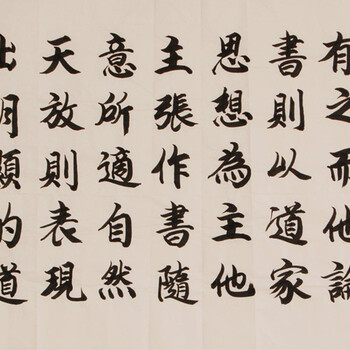 有之而他論
書則以道家
思想為主他
主張作書隨
意所適自然
天放則表現
出明顯的道